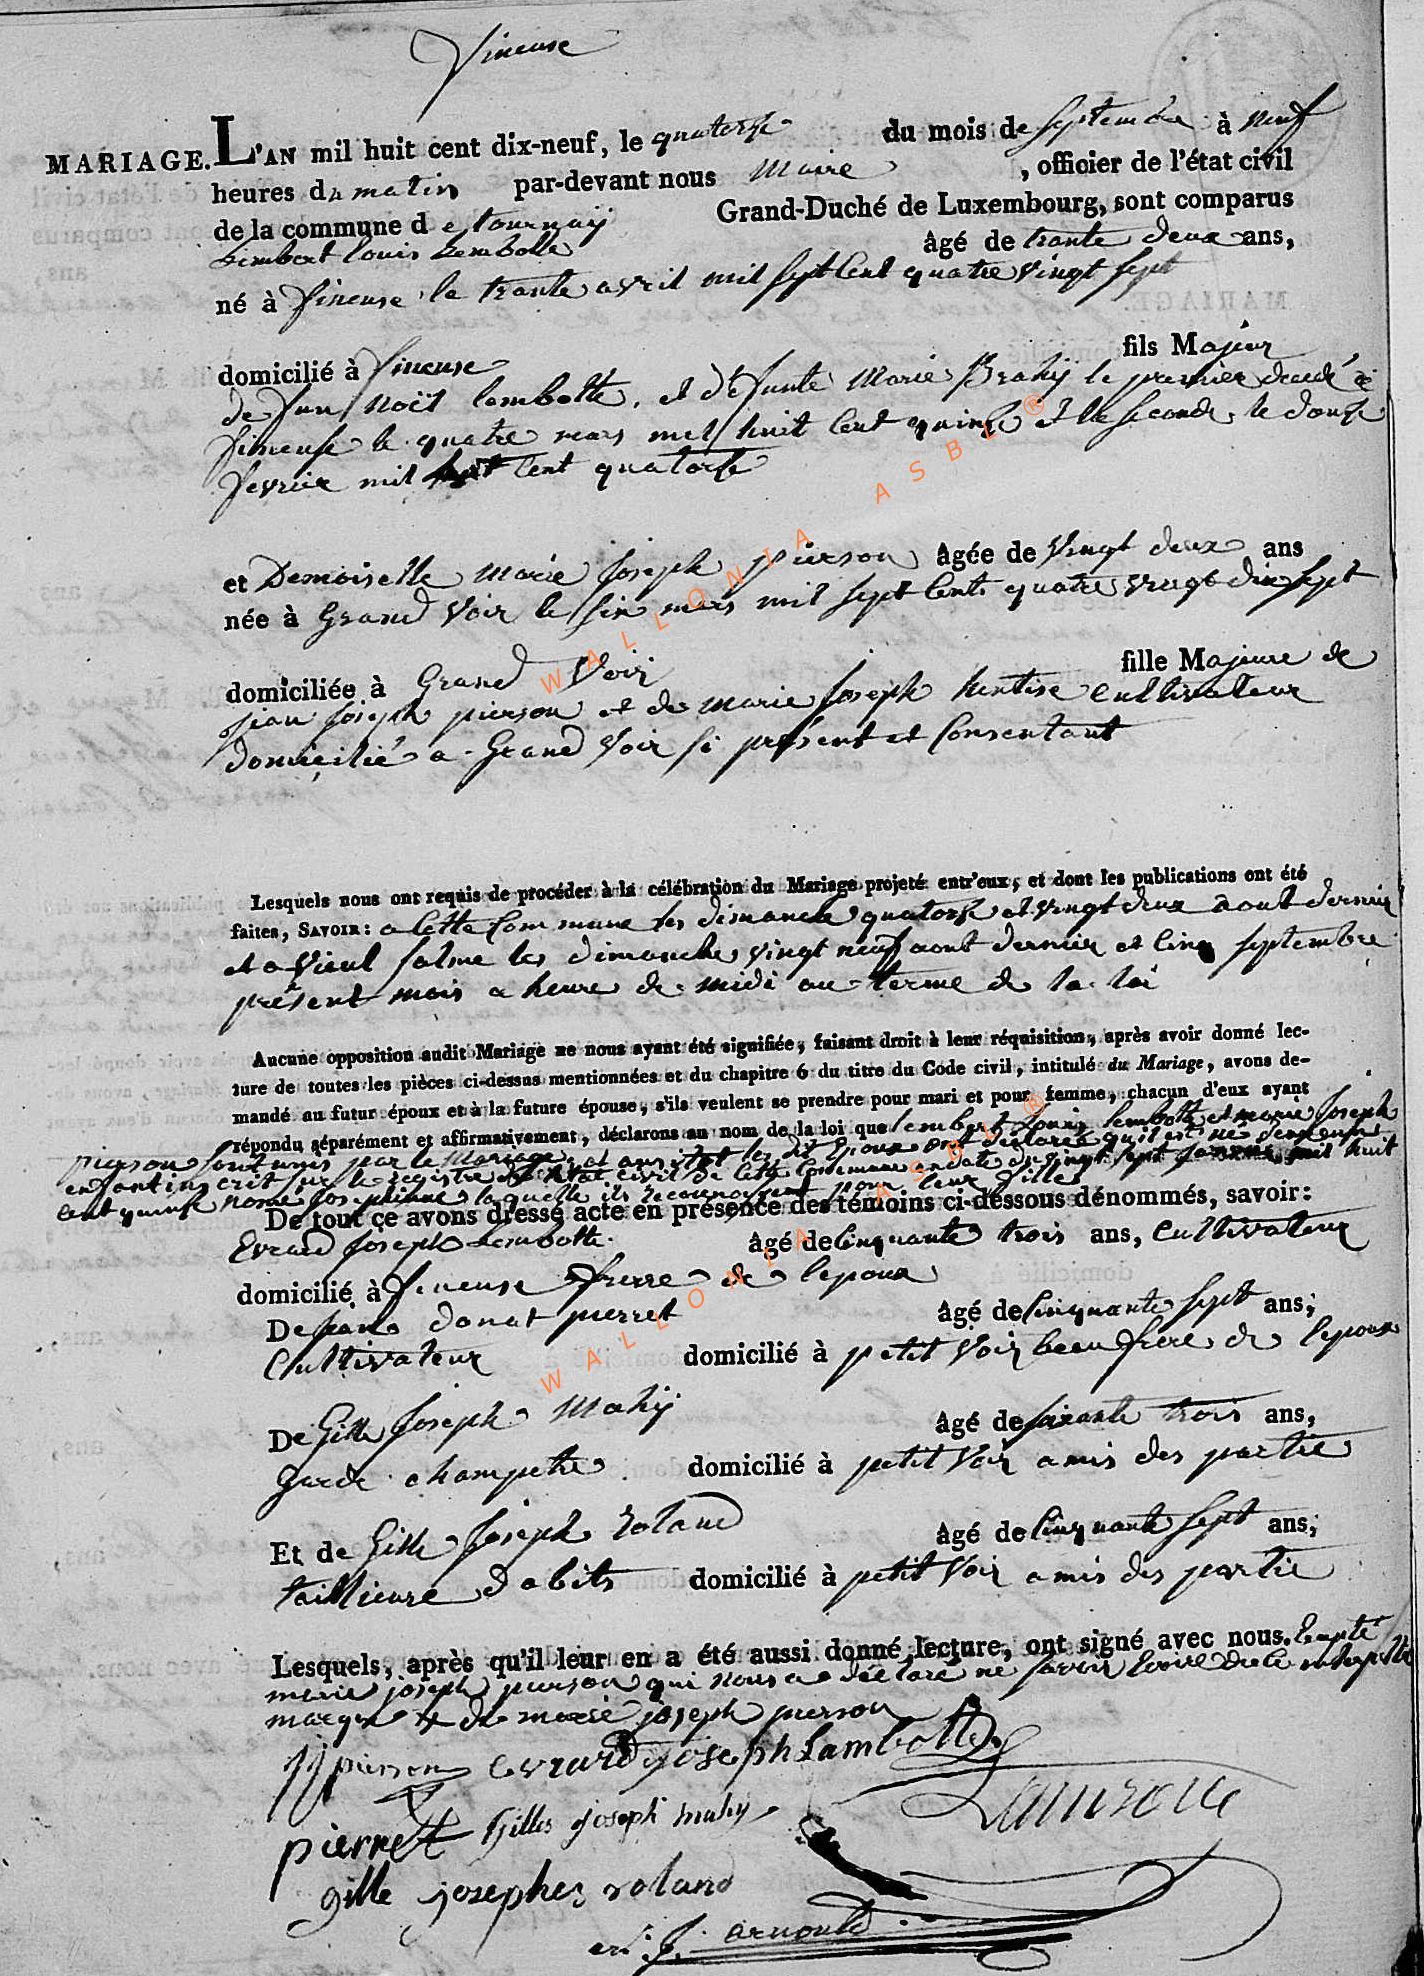 Vineuse
MARIAGE. L'AN mil huit cent dix-neuf, le quatorze du mois de septembre à neuf
heures du matin par-devant nous Maire , officier de l'état civil
de la commune de tournay Grand-Duché de Luxembourg, sont comparus
Lambert louis Lembotte âgé de trante deux ans,
né à Vineuse le trante avril mil sept Cent quatre vingt sept
domicilié à Vineuse fils Majeur
de feu Noël lembotte, et défunte Marie Brahy le premier decedé a
Vineuse le quatre mars mil huit Cent quinze et la seconde le douze
fevrier mil huit Cent quatorze
et Demoiselle Marie Joseph pierson âgée de Vingt deux ans
née à Grand Voir le six mars mil sept Cent quatre vingt dix sept
domiciliée à Grand Voir fille Majeure de
jean Joseph pierson et de Marie Joseph hentise Cultivateur
domicilié a Grand Voir si présent et Consentant
Lesquels nous ont requis de procéder à la célébration du Mariage projeté entr'eux, et dont les publications ont été
faites, SAVOIR: a Cette Commune les dimanche quatorze et vingt deux aout dernier
et a Vieul salme les dimanche vingt neuf aout dernier et Cinq septembre
présent mois a heure de midi au terme de la loi
Aucune opposition audit Mariage ne nous ayant été signifiée, faisant droit à leur réquisition, après avoir donné lec-
ture de toutes les pièces ci-dessus mentionnées et du chapitre 6 du titre du Code civil, intitulé du Mariage, avons de-
mandé au futur époux et à la future épouse, s'ils veulent se prendre pour mari et pour femme, chacun d'eux ayant
répondu séparément et affirmativement, déclarons au nom de la loi que lembert Louis lembotte et marie Joseph
pierson sont unis par le Mariage, et ausitot les dit Epoux ont declarés qu'il est né deux un
enfant inscrit sur le registre de l'état civil de Cette Commune en date du vingt sept janvier mil huit
Cent quinze nomé Josephinne laquelle ils reconnoissent pour leur fille
De tout ce avons dressé acte en présence des témoins ci-dessous dénommés, savoir:
Evrard Joseph Lembotte âgé de Cinquante trois ans, Cultivateur
domicilié à Vineuse frerre de lepoux
De Jean donat pierret âgé de Cinquante sept ans;
Cultivateur domicilié à petit Voir beau frere de lepoux
De Gille Joseph Mahy âgé de soixante trois ans,
Garde champetre domicilié à petit Voir amis des partie
Et de Gille Joseph Roland âgé de Cinquante sept ans;
taillieure dabits domicilié à petit Voir amis des partie
Lesquels, après qu'il leur en a été aussi donné lecture, ont signé avec nous. Excepté
marie joseph pierson qui nous a déclaré ne savoir Ecrire de ce interpellé
marque + de marie joseph pierson
jj pierson evrard joseph Lambotte
pierret Gilles joseph mahy
gille josephes roland
arnould
WALLONIA ASBL ®
WALLONIA ASBL ®